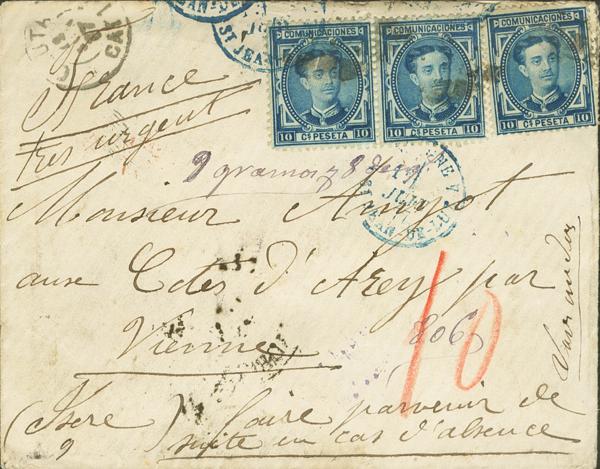 COMUNICACIONES COMUNICACIONES COMUNICACIONES
10 Cs PESETA 10 10 Cs PESETA 10 10 Cs PESETA 10
France
très urgent
9 gramos
Monsieur Amyot
aux Cotes d'Arey par
Vienne
(Isère)
9
faire parvenir de
suite en cas d'absence
10
806